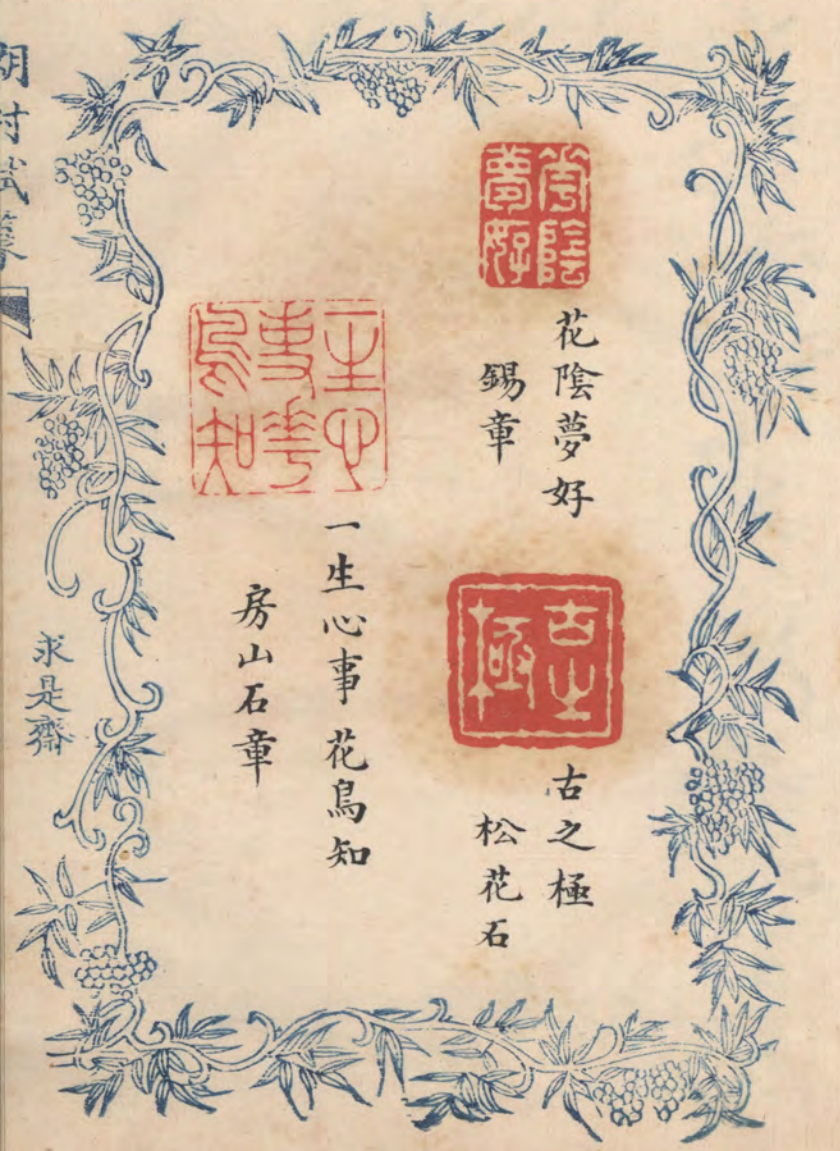 花陰
夢好
花陰夢好
錫章
古之
極
古之極
松花石
一生心
事花
鳥知
一生心事花鳥知
房山石章
求是齋